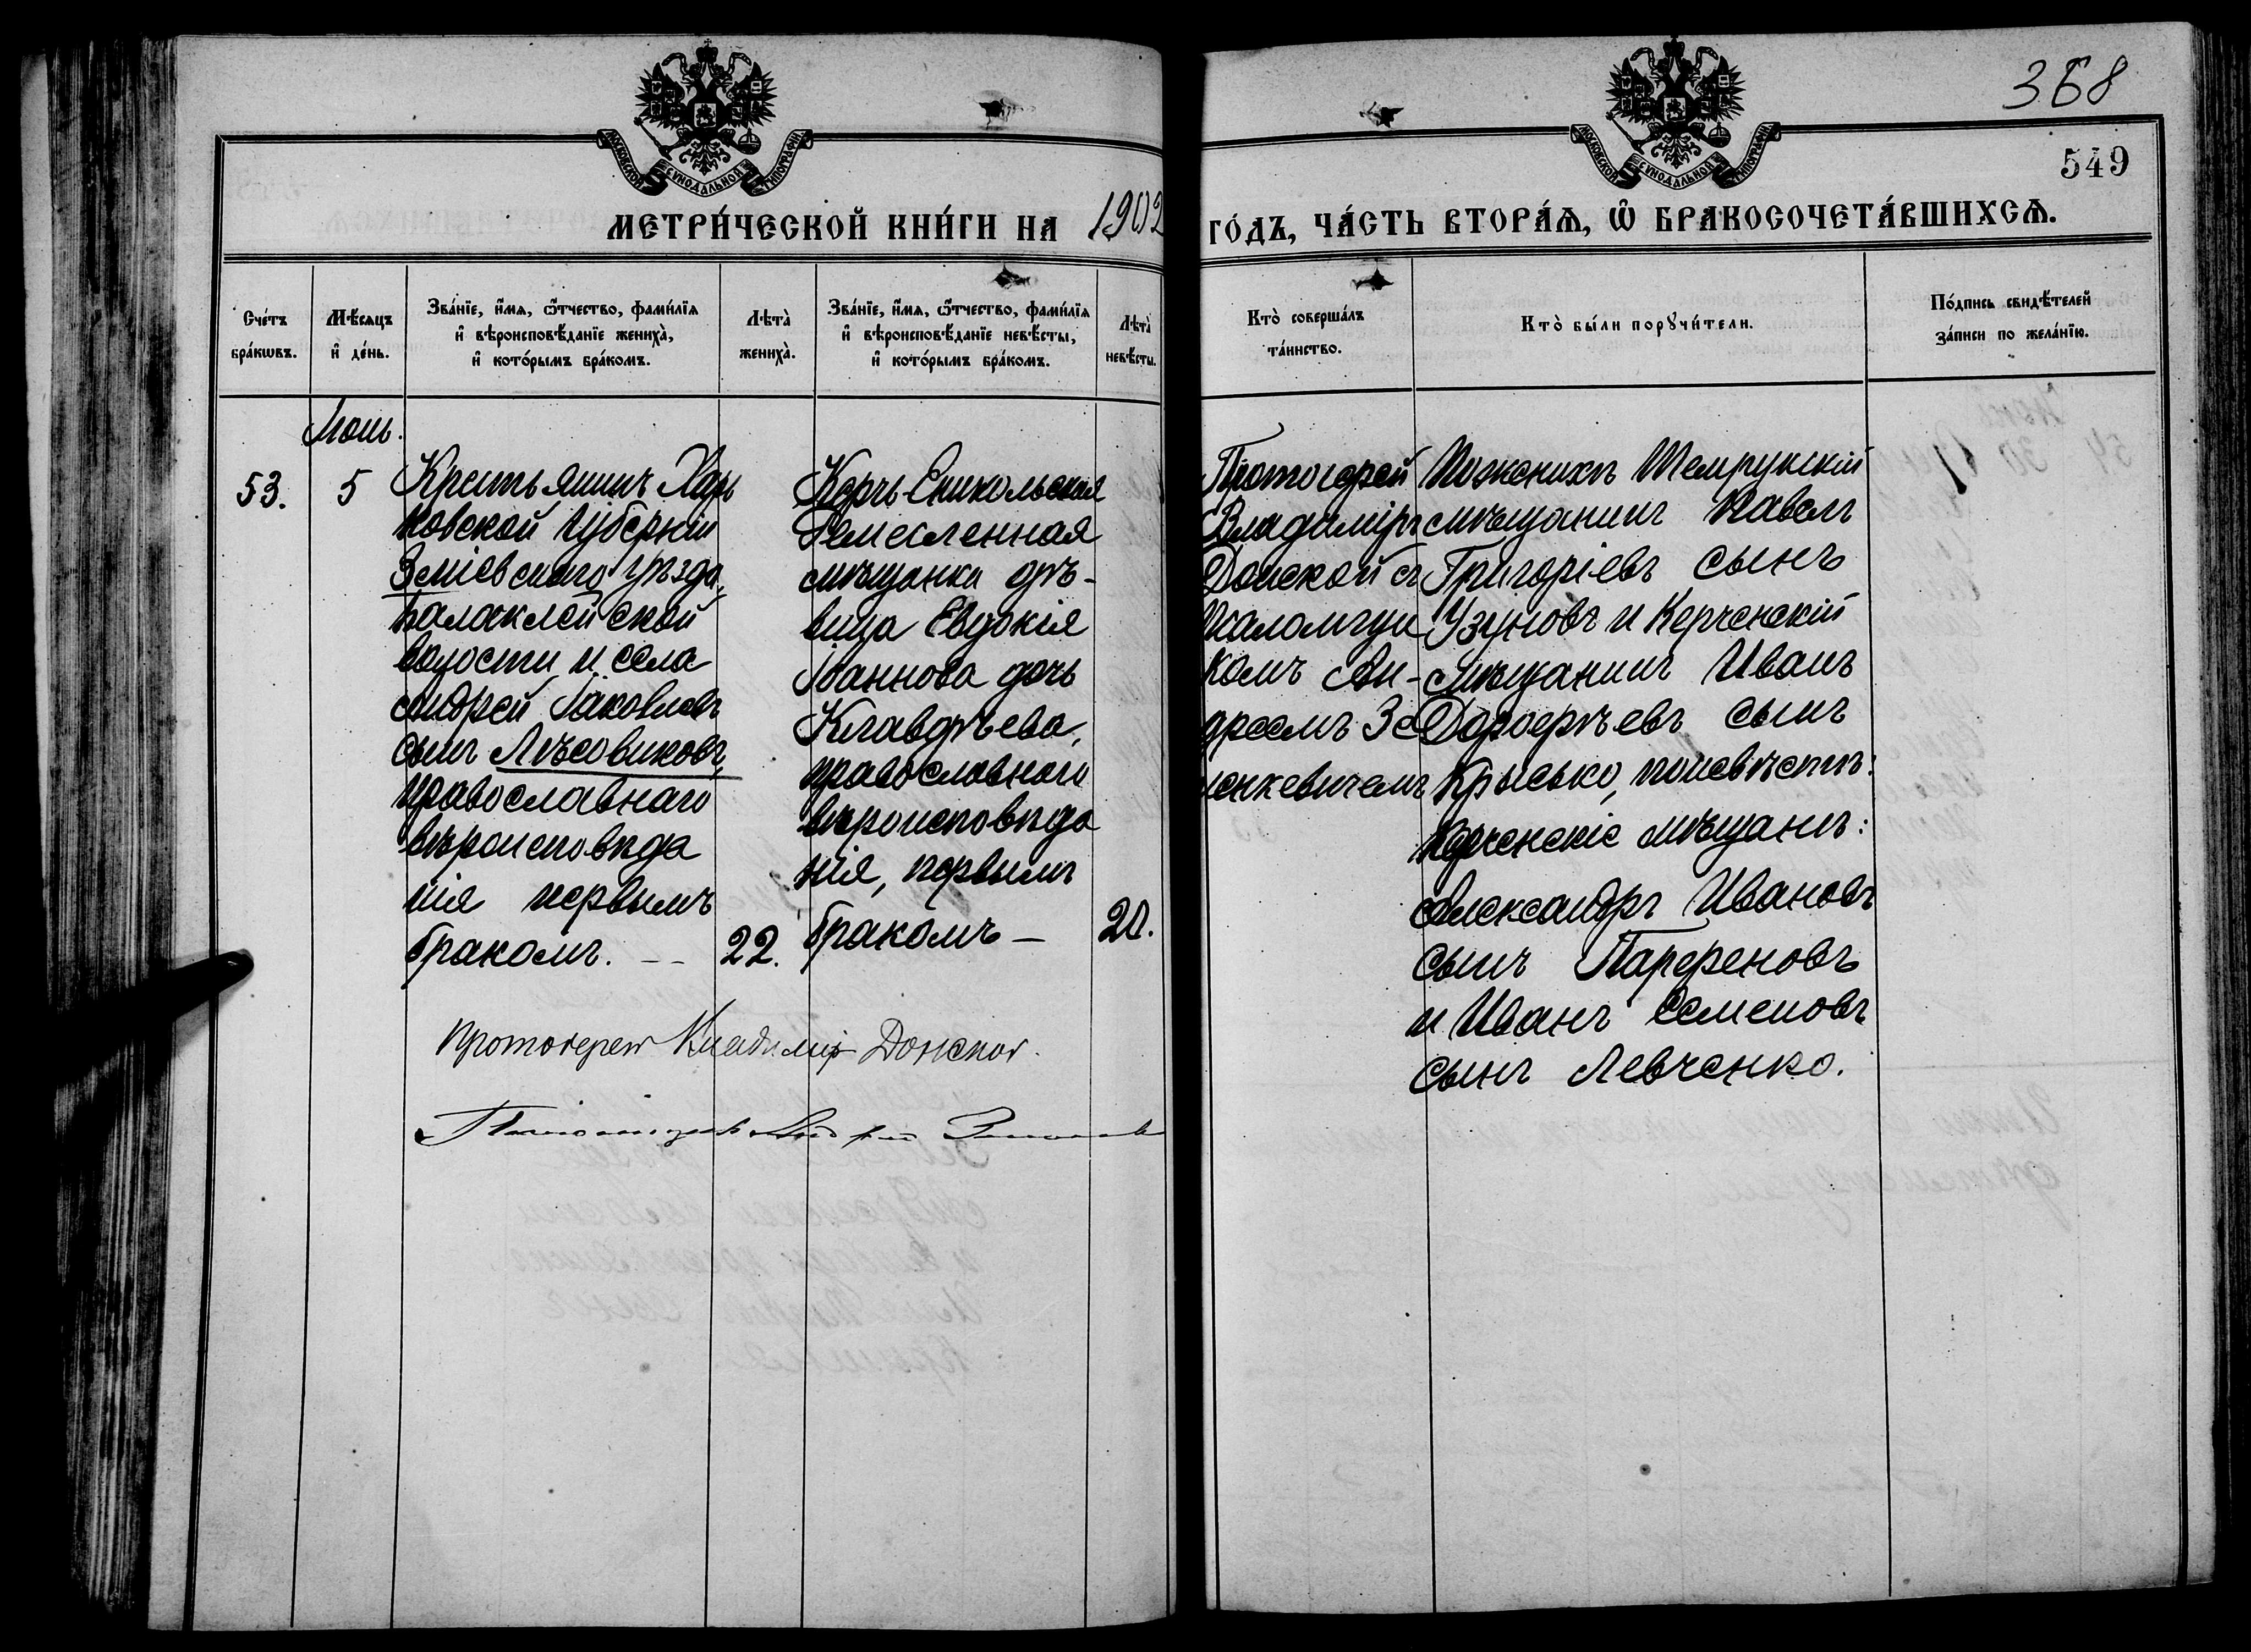 368
549
МОСКОВСКОЙ СѴНОДАЛЬНОЙ ТИПОГРАФІИ
МОСКОВСКОЙ СѴНОДАЛЬНОЙ ТИПОГРАФІИ
МЕТРИ́ЧЕСКОЙ КНИ́ГИ НА 1902 ГО́ДЪ, ЧА́СТЬ ВТОРА́Ѧ, Ѽ БРАКОСОЧЕТА́ВШИХСѦ.
Сче́тъ
бра́кѡвъ.
Мѣ́сяцъ
и҆ де́нь.
Зва́нїе, и҆́мя, ѻ҆́тчество, фами́лїя
и҆ вѣроисповѣ́данїе жениха̀,
и҆ кото́рымъ бра́комъ.
Лѣта̀
жениха̀.
Зва́нїе, и҆́мя, ѻ҆́тчество, фами́лїя
и҆ вѣроисповѣ́данїе невѣ́сты,
и҆ кото́рымъ бра́комъ.
Лѣта̀
невѣ́сты.
Кто̀ соверша́лъ
та́инство.
Кто̀ бы́ли порꙋчи́тели.
По́дпись свидѣ́телей
за́писи по жела́нїю.
53.
5
Крестьянинъ Харь
ковской Губерніи
Зміевскаго уѣзда,
Балаклейской
волости и села
Андрей Іаковлевъ
сынъ Лѣсовиковъ,
православнаго
вѣроисповѣда
нія первымъ
бракомъ. — —
22.
Керчь-Еникольская
Ремесленная
мѣщанка дѣ-
вица Евдокія
Іоаннова дочь
Клавдѣева,
православнаго
вѣроисповѣда
нія, первымъ
бракомъ —
20.
Протоіерей
Владиміръ
Донской съ
псаломщи
комъ Ан-
дреемъ
Поженихѣ Темрукскій
мѣщанинъ Павелъ
Григоріевъ сынъ
Узуновъ и Керченскій
мѣщанинъ Иванъ
Дорофѣевъ сынъ
Крысько, поневѣстѣ:
Керченскіе мѣщанѣ:
Александръ Ивановъ
сынъ Парфеновъ
и Иванъ Семеновъ
сынъ Левченко.
Протоіерей Владиміръ Донской.